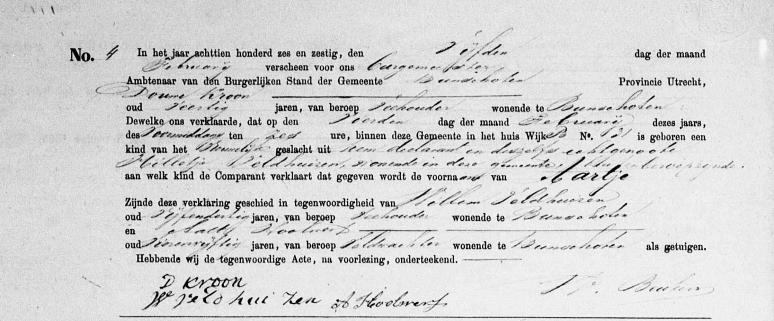 No. 4 In het jaar achttien honderd zes en zestig, den Vijfden dag der maand
Februarij verscheen voor ons Burgemeester
Ambtenaar van den Burgerlijken Stand der Gemeente Bunschoten Provincie Utrecht,
Douwe Kroon
oud Veertig jaren, van beroep Veehouder wonende te Bunschoten
Dewelke ons verklaarde, dat op den Vierden dag der maand Februarij dezes jaars,
des Voormiddags ten zes ure, binnen deze Gemeente in het huis Wijk B No. is geboren een
kind van het Vrouwelijk geslacht uit hem declarant en deszelfs echtgenoote
Hilletje Veldhuizen, wonende in deze gemeente
aan welk kind de Comparant verklaart dat gegeven wordt de voornaam van Aartje
Zijnde deze verklaring geschied in tegenwoordigheid van Willem Veldhuizen
oud Vijfendertig jaren, van beroep Veehouder wonende te Bunschoten
en Aalt Hoolwerf
oud jaren, van beroep Veldwachter wonende te Bunschoten als getuigen.
Hebbende wij de tegenwoordige Acte, na voorlezing, onderteekend.
D Kroon
W Veldhuizen A Hoolwerf